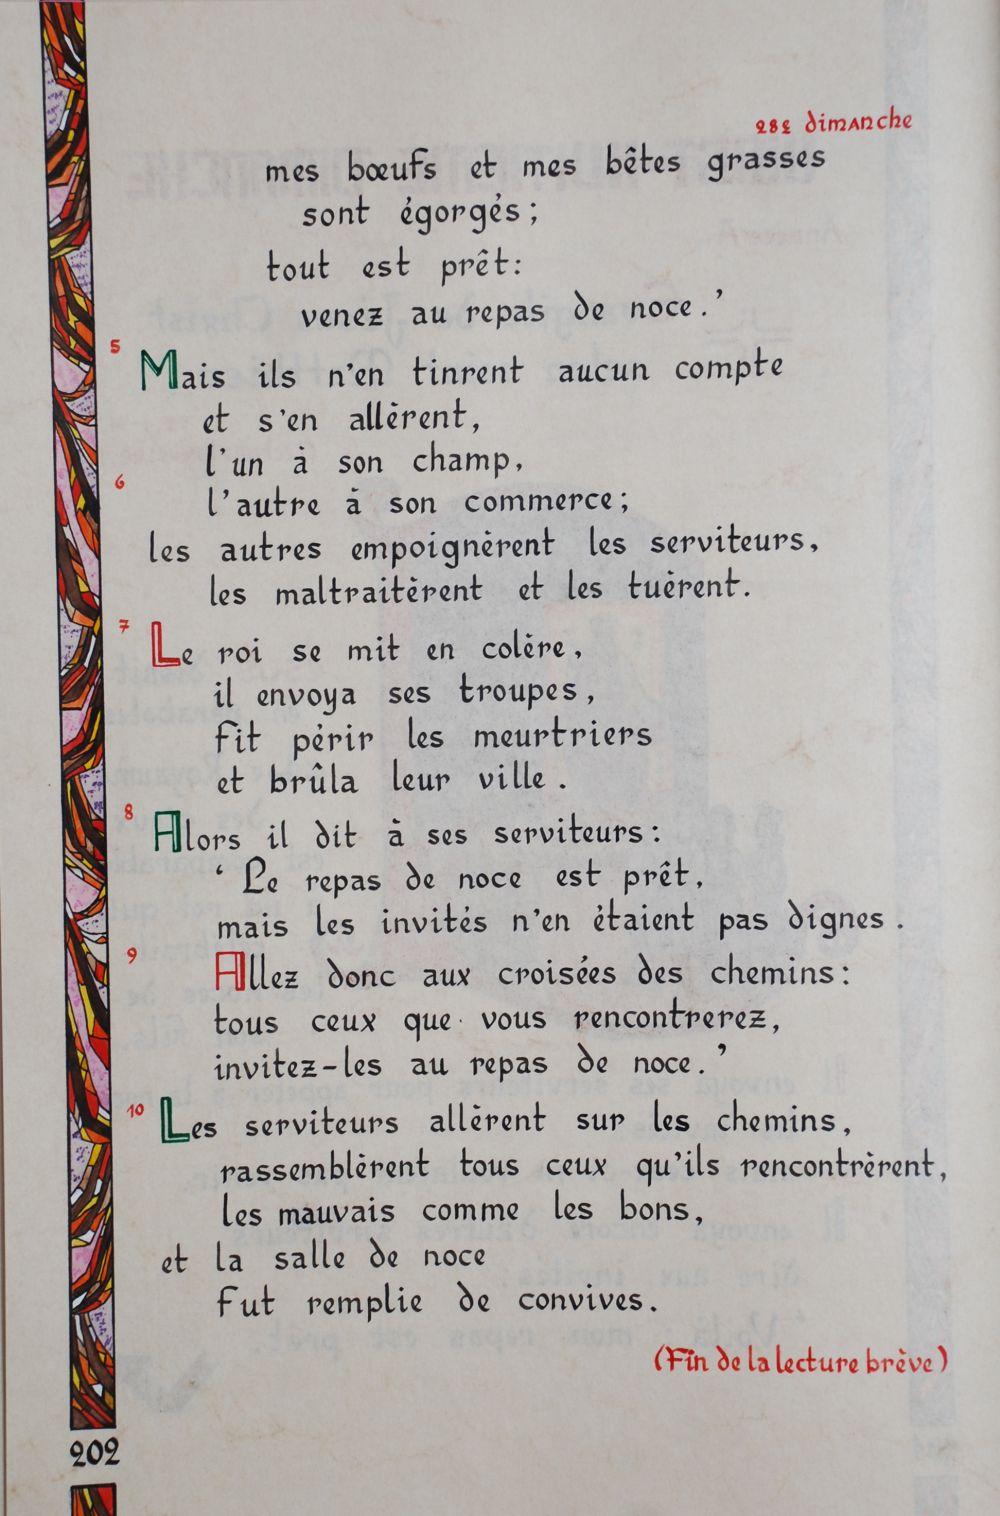 28e dimanche
mes bœufs et mes bêtes grasses
sont égorgés ;
tout est prêt :
venez au repas de noce.’
5
Mais ils n’en tinrent aucun compte
et s’en allèrent,
l’un à son champ,
6
l’autre à son commerce ;
les autres empoignèrent les serviteurs,
les maltraitèrent et les tuèrent.
7
Le roi se mit en colère,
il envoya ses troupes,
fit périr les meurtriers
et brûla leur ville .
8
Alors il dit à ses serviteurs :
‘ Le repas de noce est prêt,
mais les invités n’en étaient pas dignes .
9
Allez donc aux croisées des chemins :
tous ceux que vous rencontrerez,
invitez-les au repas de noce.’
10
Les serviteurs allèrent sur les chemins,
rassemblèrent tous ceux qu’ils rencontrèrent,
les mauvais comme les bons,
et la salle de noce
fut remplie de convives.
(Fin de la lecture brève)
202